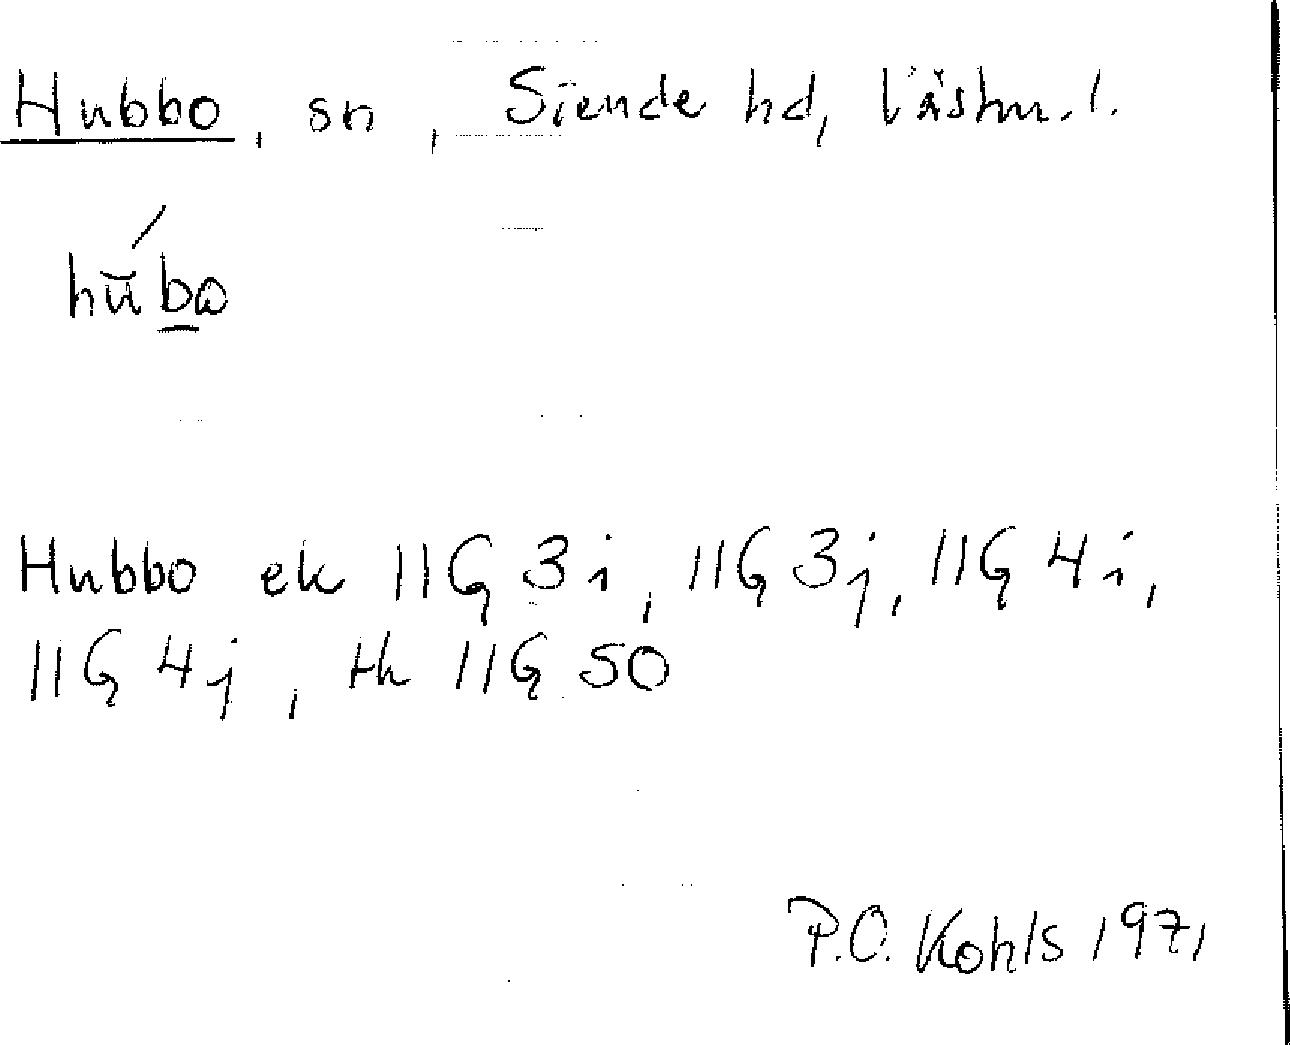 Hubbo, sn, Siende hd, Västm. l.
hu̅́bo
Hubbo ek 11G 3i, 11G 3j, 11G 4i,
11G 4j, tk 11G SO
P.O. Kohls 1971